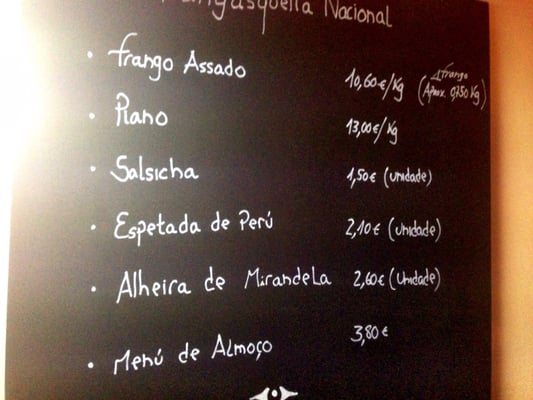 Nacional
• Frango Assado 10,60€/Kg (1 frango Aprox. 0,750 Kg)
• Piano 13,00€/Kg
• Salsicha 1,50€ (unidade)
• Espetada de Perú 2,10€ (unidade)
• Alheira de Mirandela 2,60€ (unidade)
• Menú de Almoço 3,80€